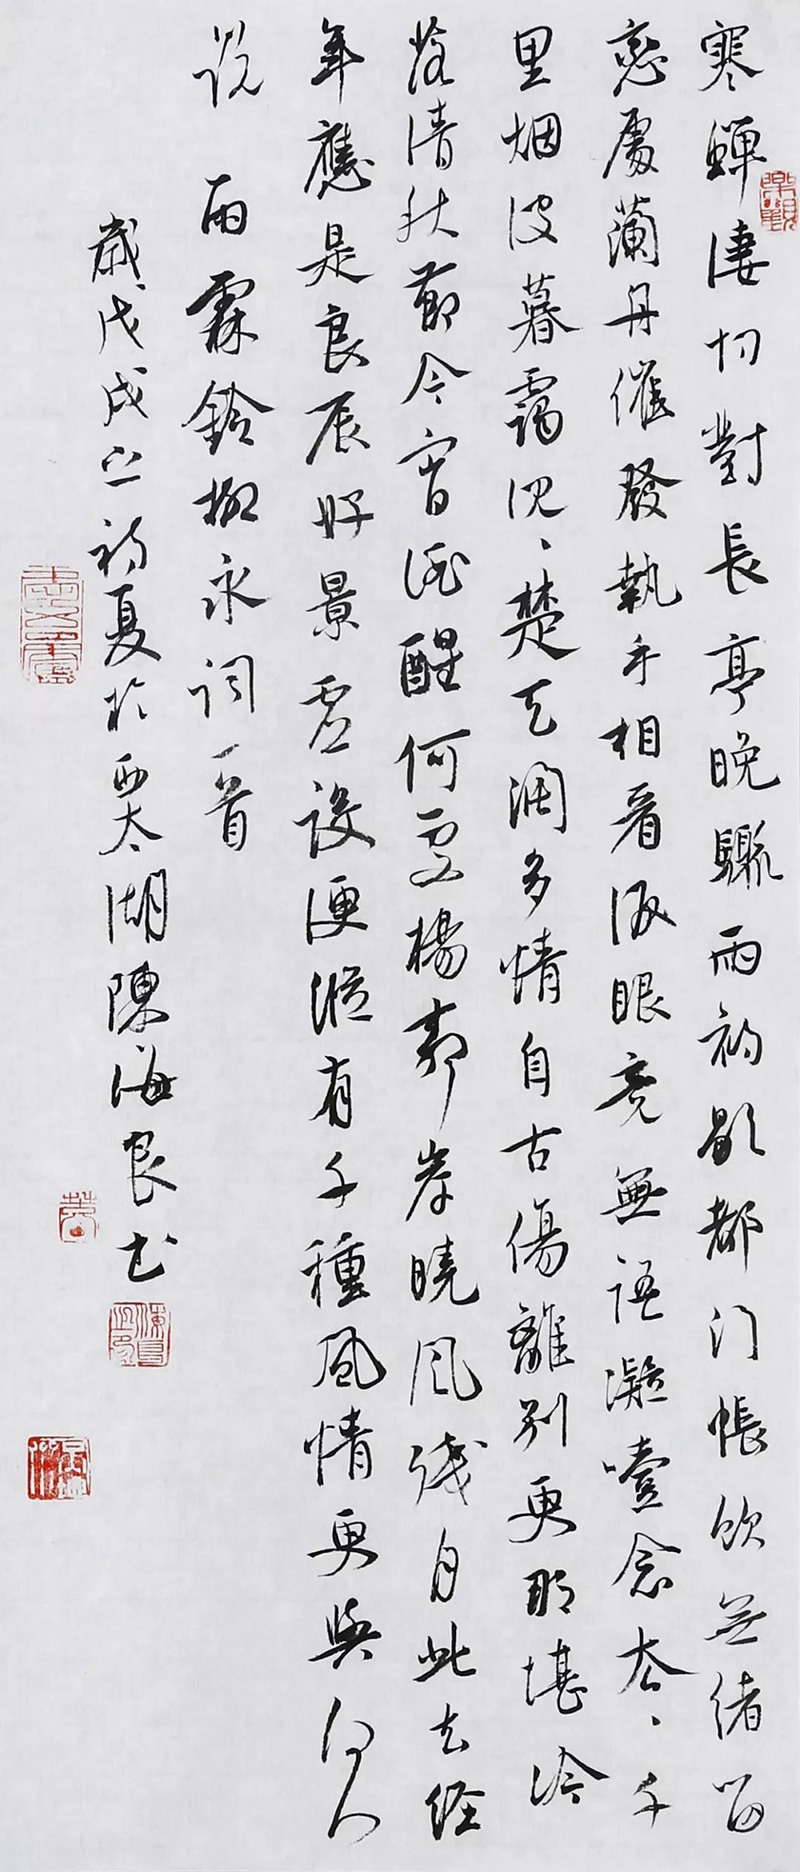 寒蟬淒切對長亭晚驟雨初歇都門帳飲無緒留
戀處蘭舟催發執手相看淚眼竟無語凝噎念去々千
里烟波暮靄沉々楚天闊多情自古傷離別更那堪冷
落清秋節今宵酒醒何處楊柳岸曉風殘月此去經
年應是良辰好景虛設便縱有千種風情更與何人
說 雨霖鈴柳永詞一首
歲戊戌之初夏於西太湖陳海良書